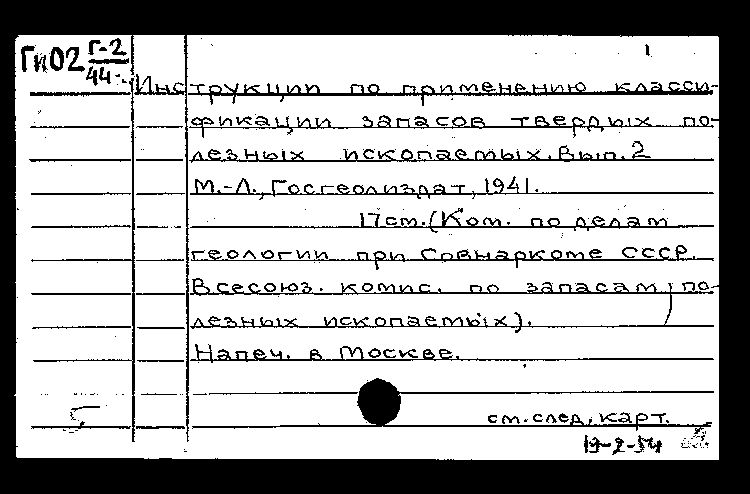 1
ГиО2 Г-2
44
Инструкции по применению класси-
фикации запасов твердых по-
лезных ископаемых. Вып. 2
М.-Л., Госгеолиздат, 1941.
17см. (Ком. по делам
геологии при Совнаркоме СССР.
Всесоюз. комис. по запасам по-
лезных ископаемых).
Напеч. в Москве.
5
см. след. карт.
19-2-54